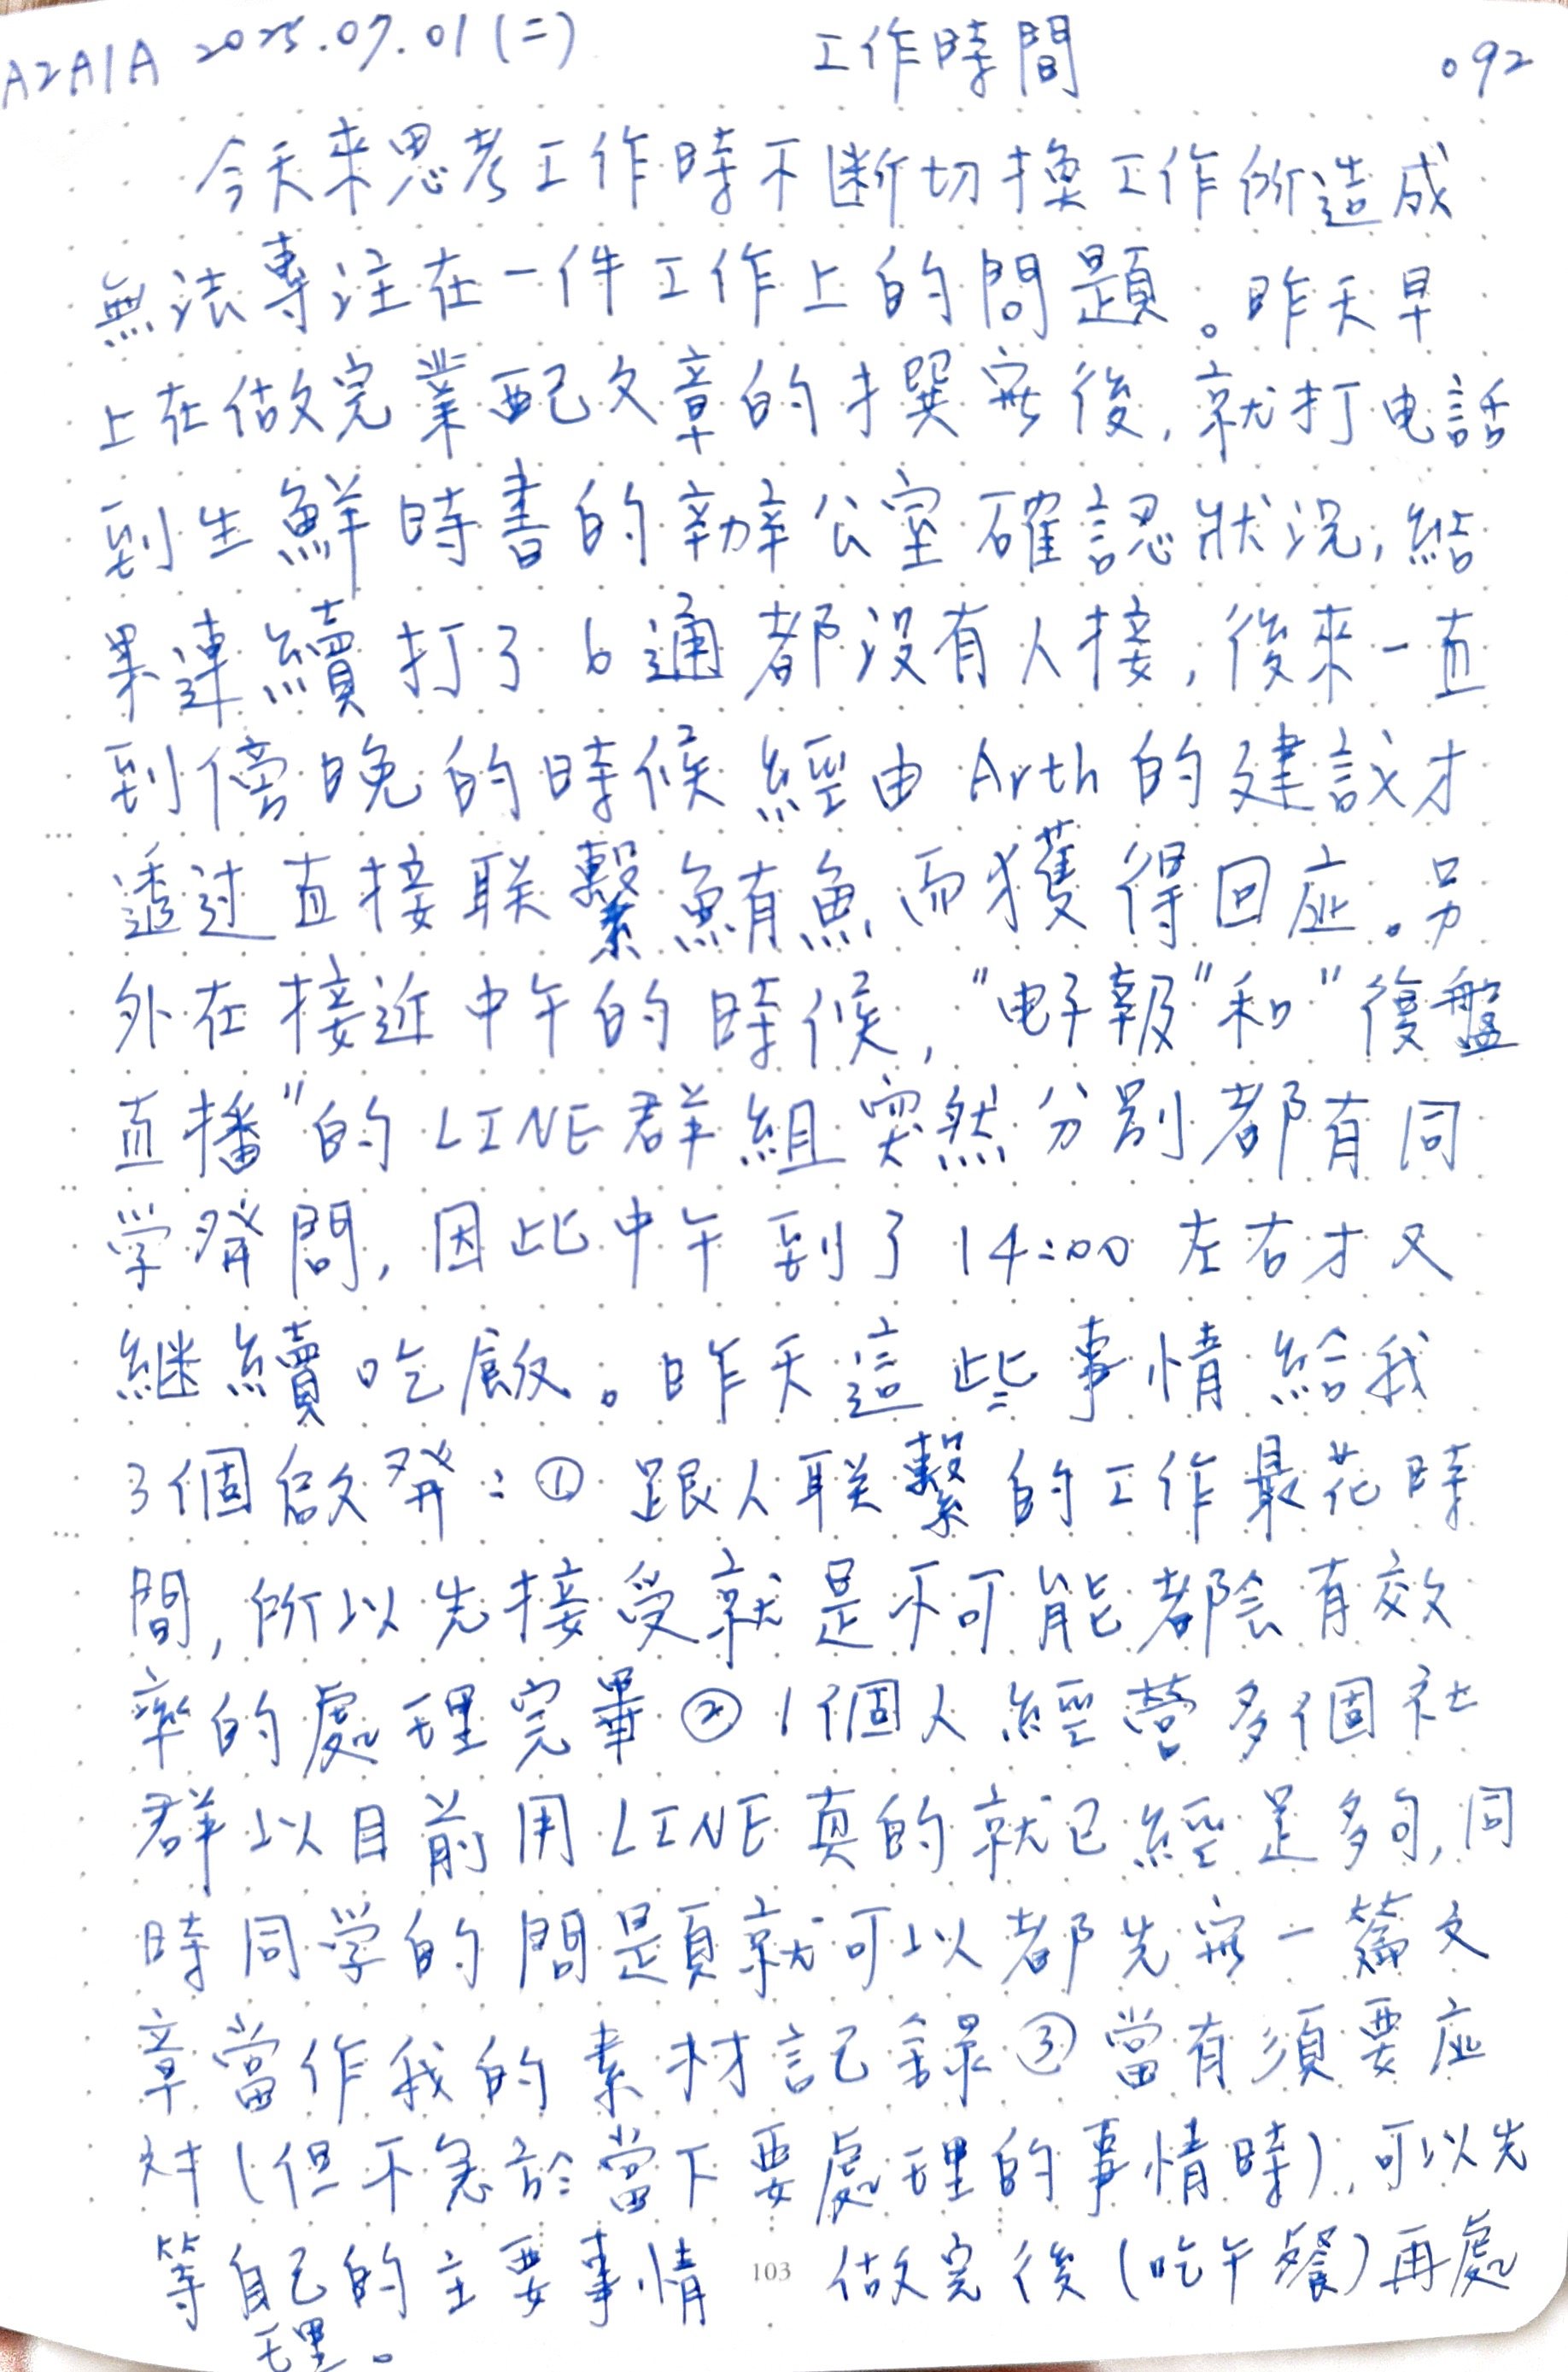 A2A1A 2025.07.01(二) 工作時間 092
今天來思考工作時不斷切換工作所造成
無法專注在一件工作上的問題。昨天早
上在做完業配文章的撰寫後,就打电話
到生鮮時書的辦公室確認狀況,結
果連續打了6通都沒有人接,後來一直
到傍晚的時候經由Arth的建議才
透过直接联繫鮪魚而獲得回应。另
外在接近中午的時候,"电子報"和"復盤
直播"的LINE群組突然分別都有同
学發問,因此中午到了14:00左右才又
継續吃飯。昨天這些事情給我
3個啟發:① 跟人联繫的工作最花時
間,所以先接受就是不可能都会有效
率的處理完畢②1個人經營多個社
群以目前用LINE真的就已經足够,同
時同学的問題就可以都先寫一篇文
章當作我的素材記錄③當有須要应
对(但不急於當下要處理的事情時),可以先
等自己的主要事情做完後(吃午餐)再處
理。
103